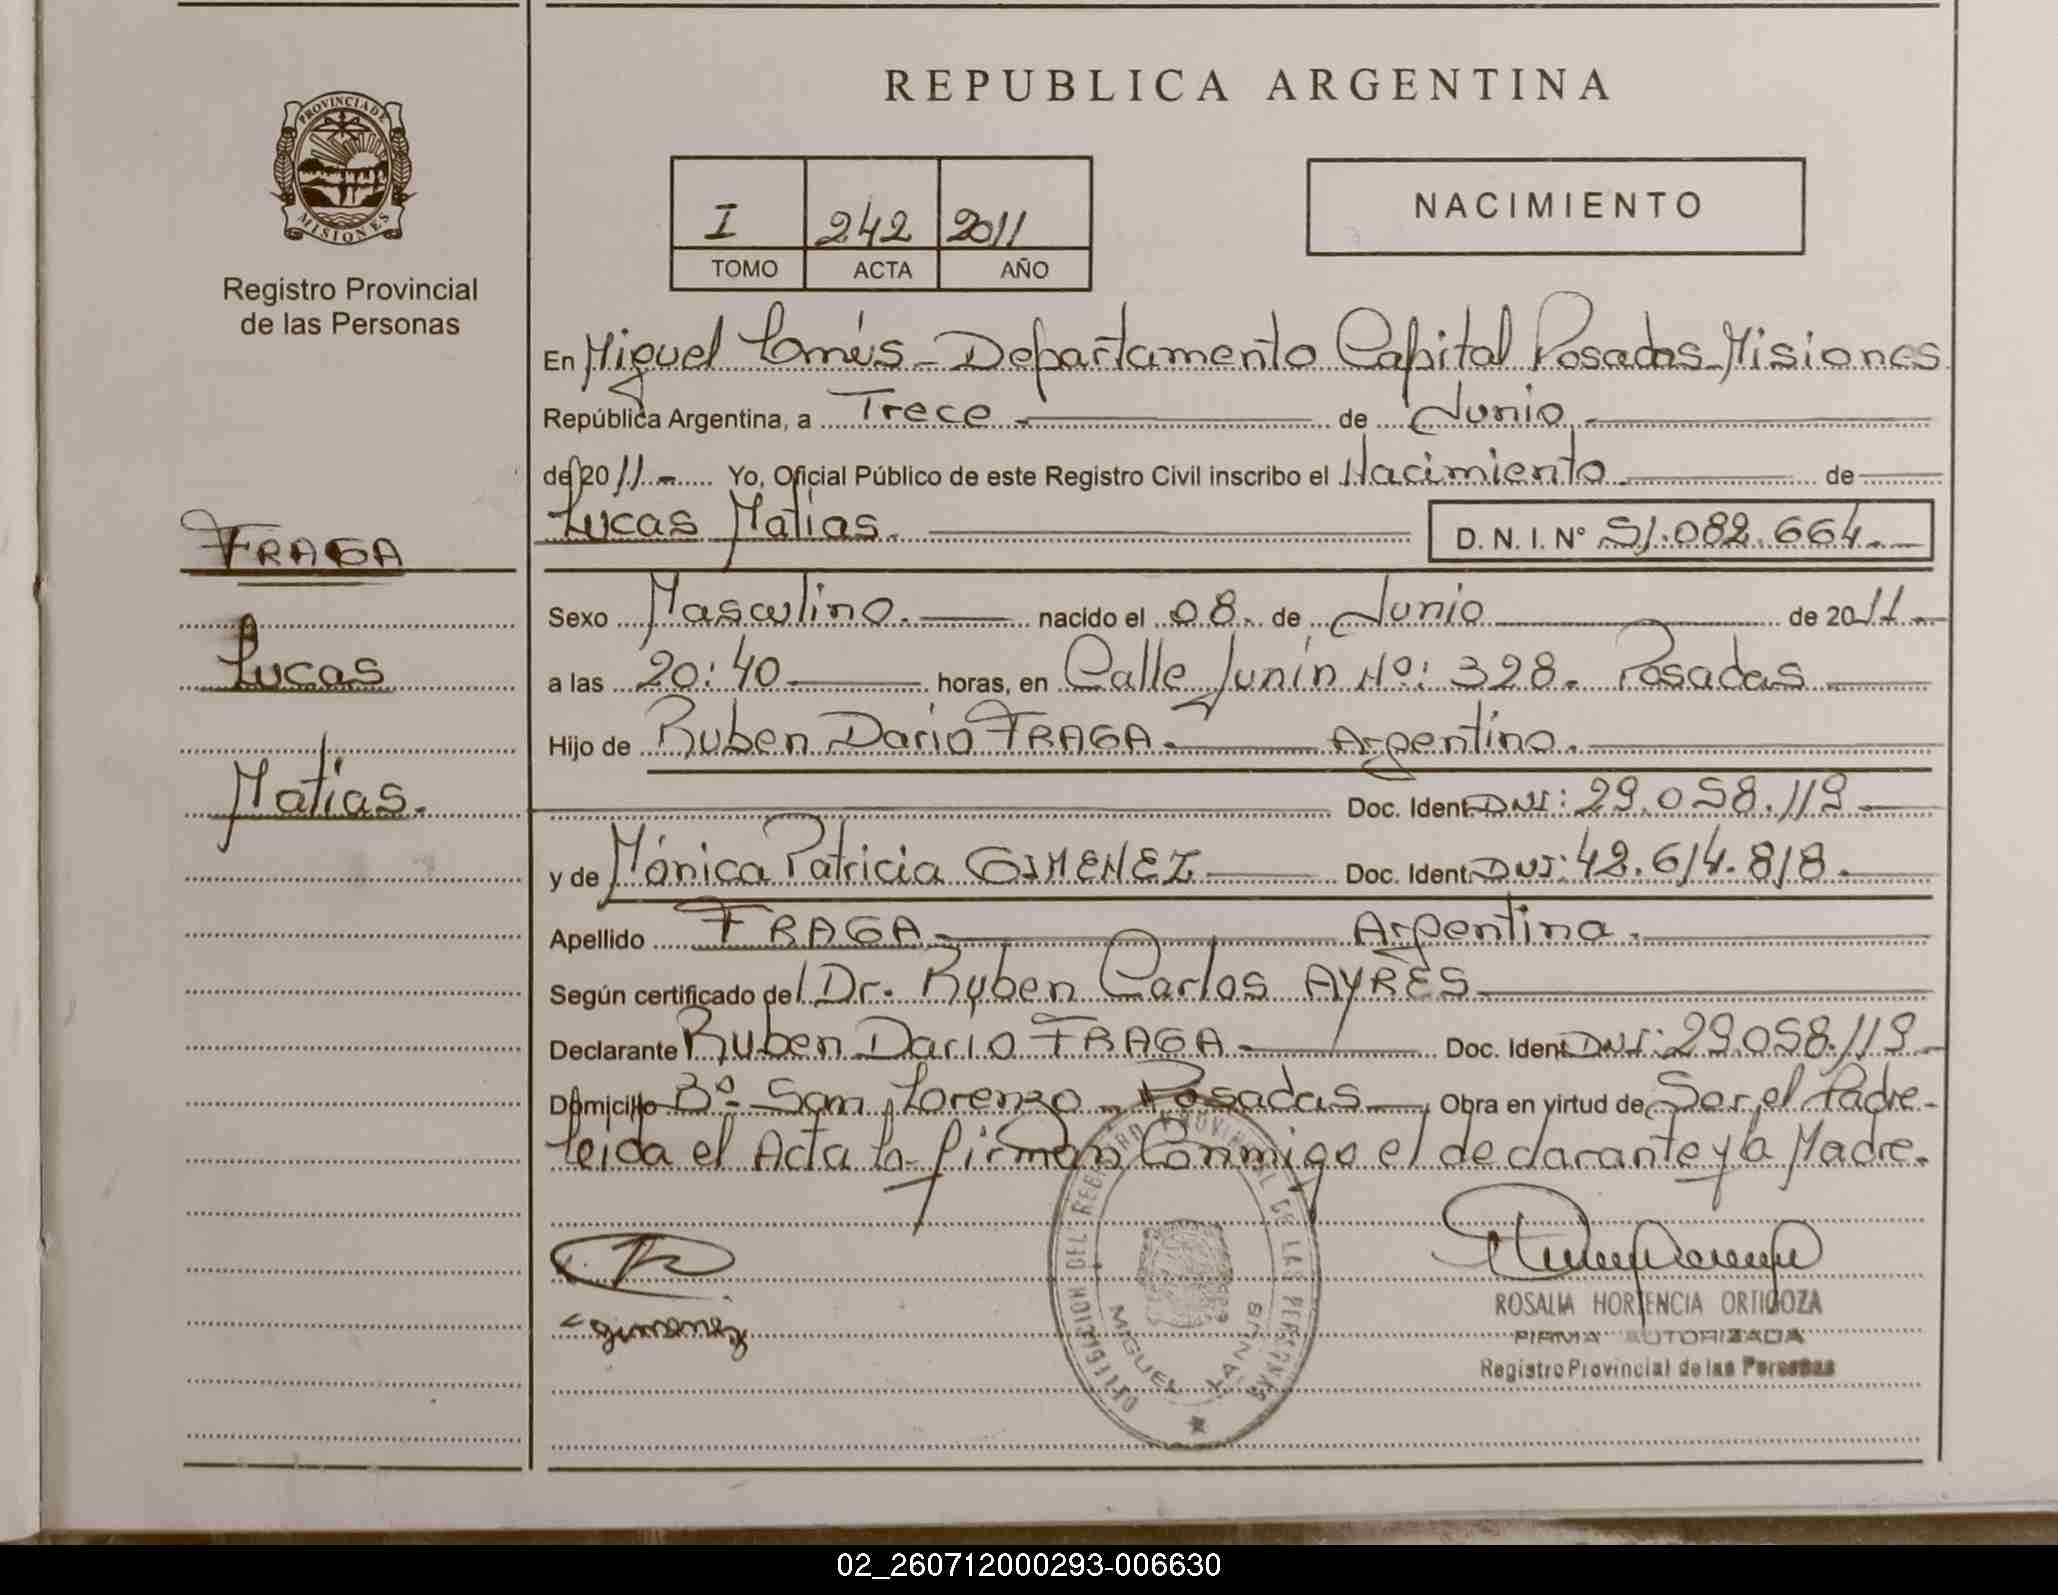 REPUBLICA ARGENTINA
PROVINCIA DE
MISIONES
Registro Provincial
de las Personas
I 242 2011
TOMO ACTA AÑO
NACIMIENTO
FRAGA
Lucas
Matías.
En Miguel Lanús - Departamento Capital Posadas - Misiones
República Argentina, a Trece de Junio
del 2011.- Yo, Oficial Público de este Registro Civil inscribo el Nacimiento de
Lucas Matías. D. N. I. N° 51.082.664.-
Sexo Masculino. nacido el 08. de Junio de 2011.-
a las 20:40 horas, en Calle Junín Nº: 328. Posadas
Hijo de Ruben Dario FRAGA. Argentino.
Doc. Ident. DNI: 29.058.119
y de Mónica Patricia GIMENEZ Doc. Ident. DNI: 42.614.818.
Apellido FRAGA Argentina.
Según certificado del Dr. Ruben Carlos AYRES
Declarante Ruben Dario FRAGA Doc. Ident. DNI: 29.058.119
Domicilio Bº San Lorenzo - Posadas Obra en virtud de Ser el Padre-
leida el Acta la firman Conmigo el declarante y la Madre.
gimenez
DELEGACION DEL REGISTRO PROVINCIAL DE LAS PERSONAS
MIGUEL LANUS
ROSALIA HORTENCIA ORTIGOZA
FIRMA AUTORIZADA
Registro Provincial de las Personas
02_260712000293-006630